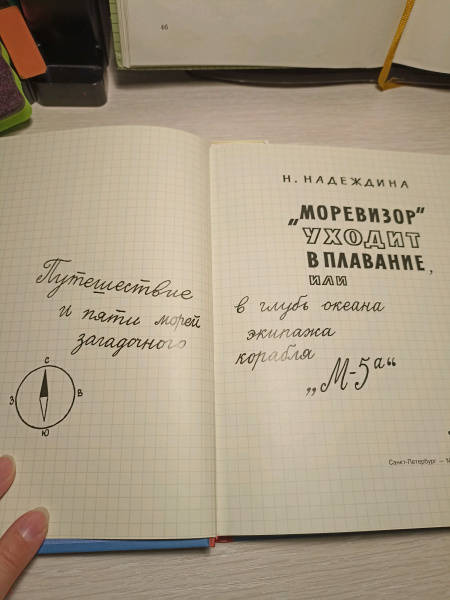 Путешествие
и пяти морей
загадочного
С
З В
Ю
Н. НАДЕЖДИНА
„МОРЕВИЗОР“
УХОДИТ
В ПЛАВАНИЕ,
ИЛИ
в глубь океана
экипажа
корабля
„М-5а“
Санкт-Петербург —